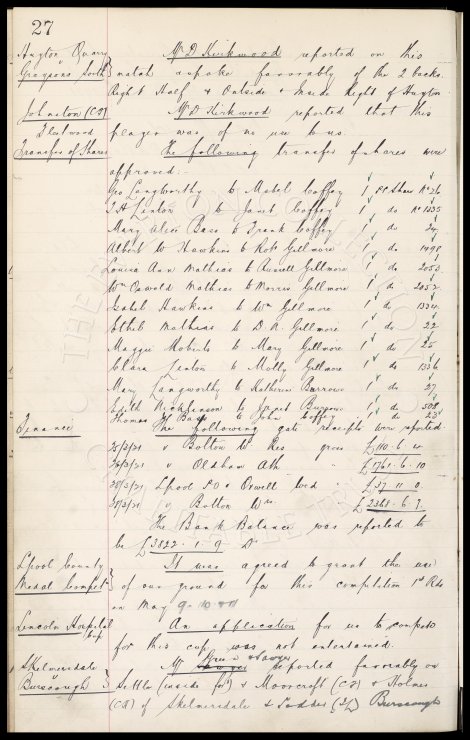 27
Huyton Quarry
v
Graysons South
Mr D Kirkwood reported on this
match & spoke favorably of the 2 backs.
Right Half & Outside & Inside Right of Huyton.
Johnston (CF)
Fleetwood
Mr D Kirkwood reported that this
player was of no use to us.
Transfer of Shares
The following transfer of shares were
approved:-
Geo Langworthy to Mabel Caffey 1 Share No 26
J H Linton to Janet Caffey 1 do No 1335
Mary Alice Base to Frank Caffey 1 do
Albert W Hawkins to Robt Gillmore 1 do 1498
Louisa Ann Mathias to Russell Gillmore 1 do 2053
Wm Oswald Mathias to Morris Gillmore 1 do 2052
Isabel Hawkins to Wm Gillmore 1 do 1334
Ethel Mathias to D A. Gillmore 1 do 22
Maggie Roberts to Mary Gillmore 1 do 25
Clara Linton to Molly Gillmore 1 do 1336
Mary Langworthy to Katherine Burrows 1 do 27
Edith Nickinson to Burrows 1 do
Thomas to Caffey 1 do 23
Finance
The following gate receipts were reported.
v Bolton W Res gross £110. 6.
26/3/21 v Oldham Ath £1761. 6. 10
28/3/21 Lpool & Orwell Wed £37. 11. 0
v Bolton Wrs £2368. 6. 3.
The Bank Balance was reported to
be £3822. 1. 9 Dr
Lpool County
Medal Compet
It was agreed to grant the use
of our ground for this competition 1st Rds
on May 9. 10
Lincoln Hospital
Cup
An application for us to compete
for this cup was not entertained.
Skelmersdale
v
Burscough
Mr reported favorably on
Settle (inside for) & Moorcroft (CF) & Holmes
(CH) of Skelmersdale & Burscough